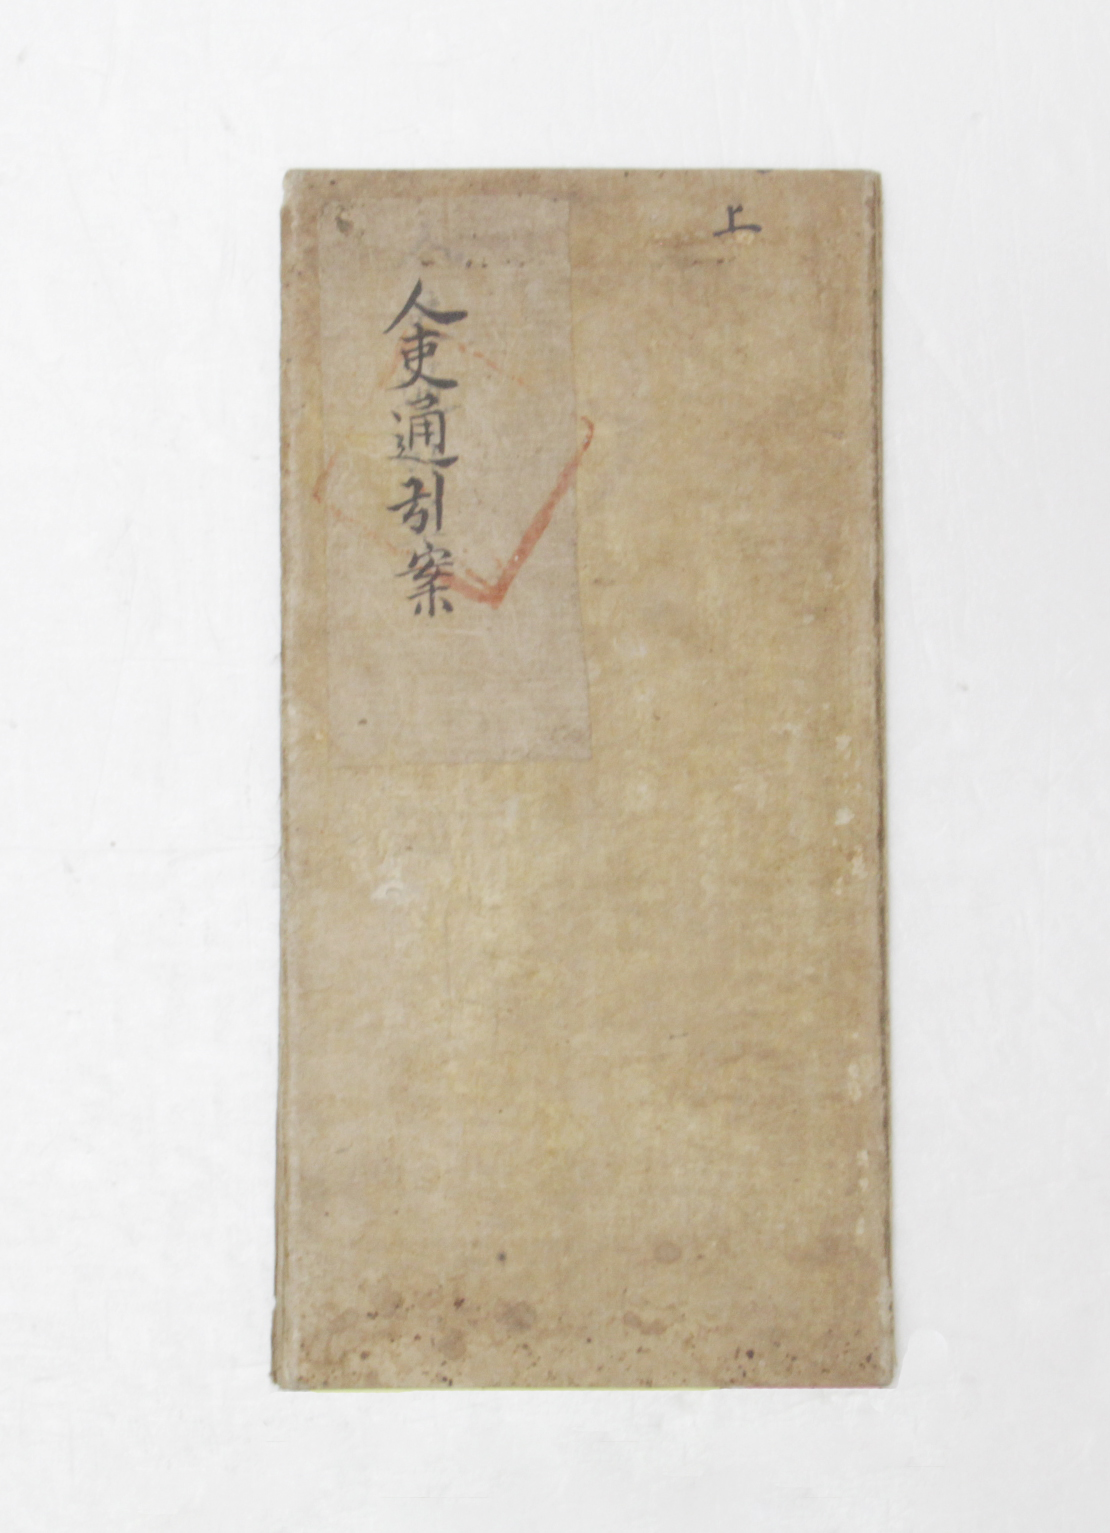 上
人吏通引案